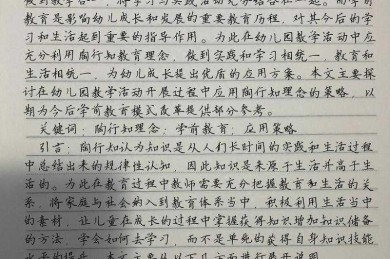 做到教学合一，将学习与实践活动充分结合在一起。而学前教
育是影响幼儿成长和发展的重要教育历程，对其今后的学
习和生活起到重要的指导作用。为此在幼儿园教学活动中应
充分利用陶行知教育理念，做到实践和学习相统一，教育和
生活相统一，为幼儿成长提出优质的应用方案。本文主要探
讨在幼儿园教学活动开展过程中应用陶行知理念的策略，以
期为今后学前教育模式改革提供部分参考。
关健词：陶行知理念；学前教育；应用策略
引言：陶行知认为知识是从人们长时间的实践和生活过程
中总结出来的规律性认知，因此知识是来源于生活并高于生
活的。为此在教育过程中教师需要充分把握教育和生活的关
系，将家庭与社会纳入到教育体系当中，积极利用生活当中
的素材，让儿童在成长的过程中掌握获得知识增加知识储备
的方法，学会如何去学习，而不是单纯的获得自身知识技能
水平的提升。本文主要从以下几方面进行展开说明